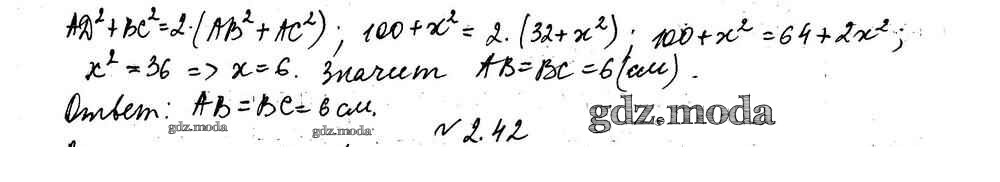 AD²+BC²=2·(AB²+AC²); 100+x²=2·(32+x²); 100+x²=64+2x²;
x²=36 => x=6. Значит AB=BC=6(см).
Ответ: AB=BC=6см.
gdz.moda gdz.moda gdz.moda
№2.42